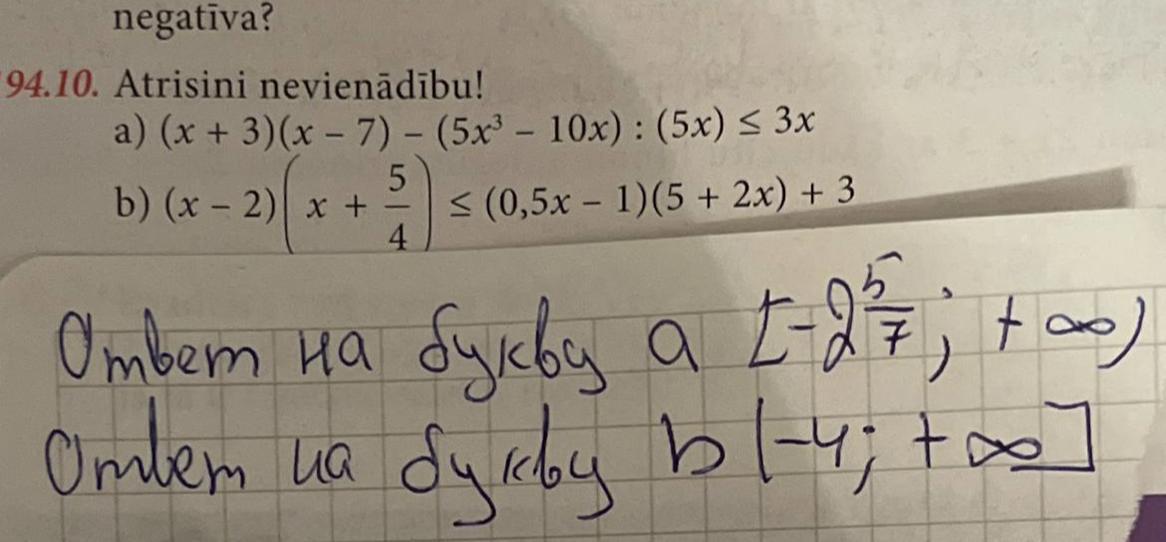 negatīva?
94.10. Atrisini nevienādību!
a) (x + 3)(x − 7) − (5x³ − 10x) : (5x) ≤ 3x
b) (x − 2)(x + 5/4) ≤ (0,5x − 1)(5 + 2x) + 3
Ответ на букву а [-2 5/7; +∞)
Ответ на букву b [-4; +∞]